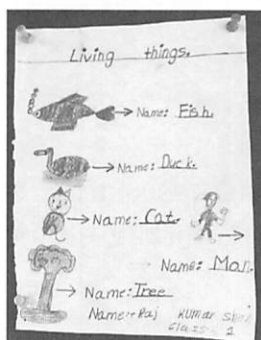 Living things.
→ Name: Fish.
→ Name: Duck.
→ Name: Cat. →
Name: Man.
→ Name: Tree
Name:- Raj Kumar
Class - 1